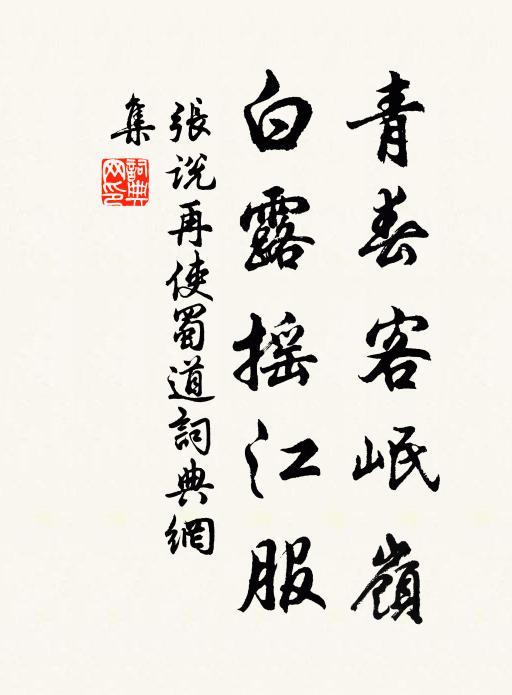 青春客岷嶺
白露摇江服
張説再使蜀道詞典網
集
詞典網印